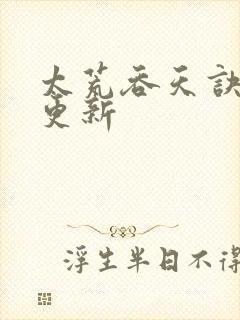 太荒吞天诀
更新
浮生半日不得